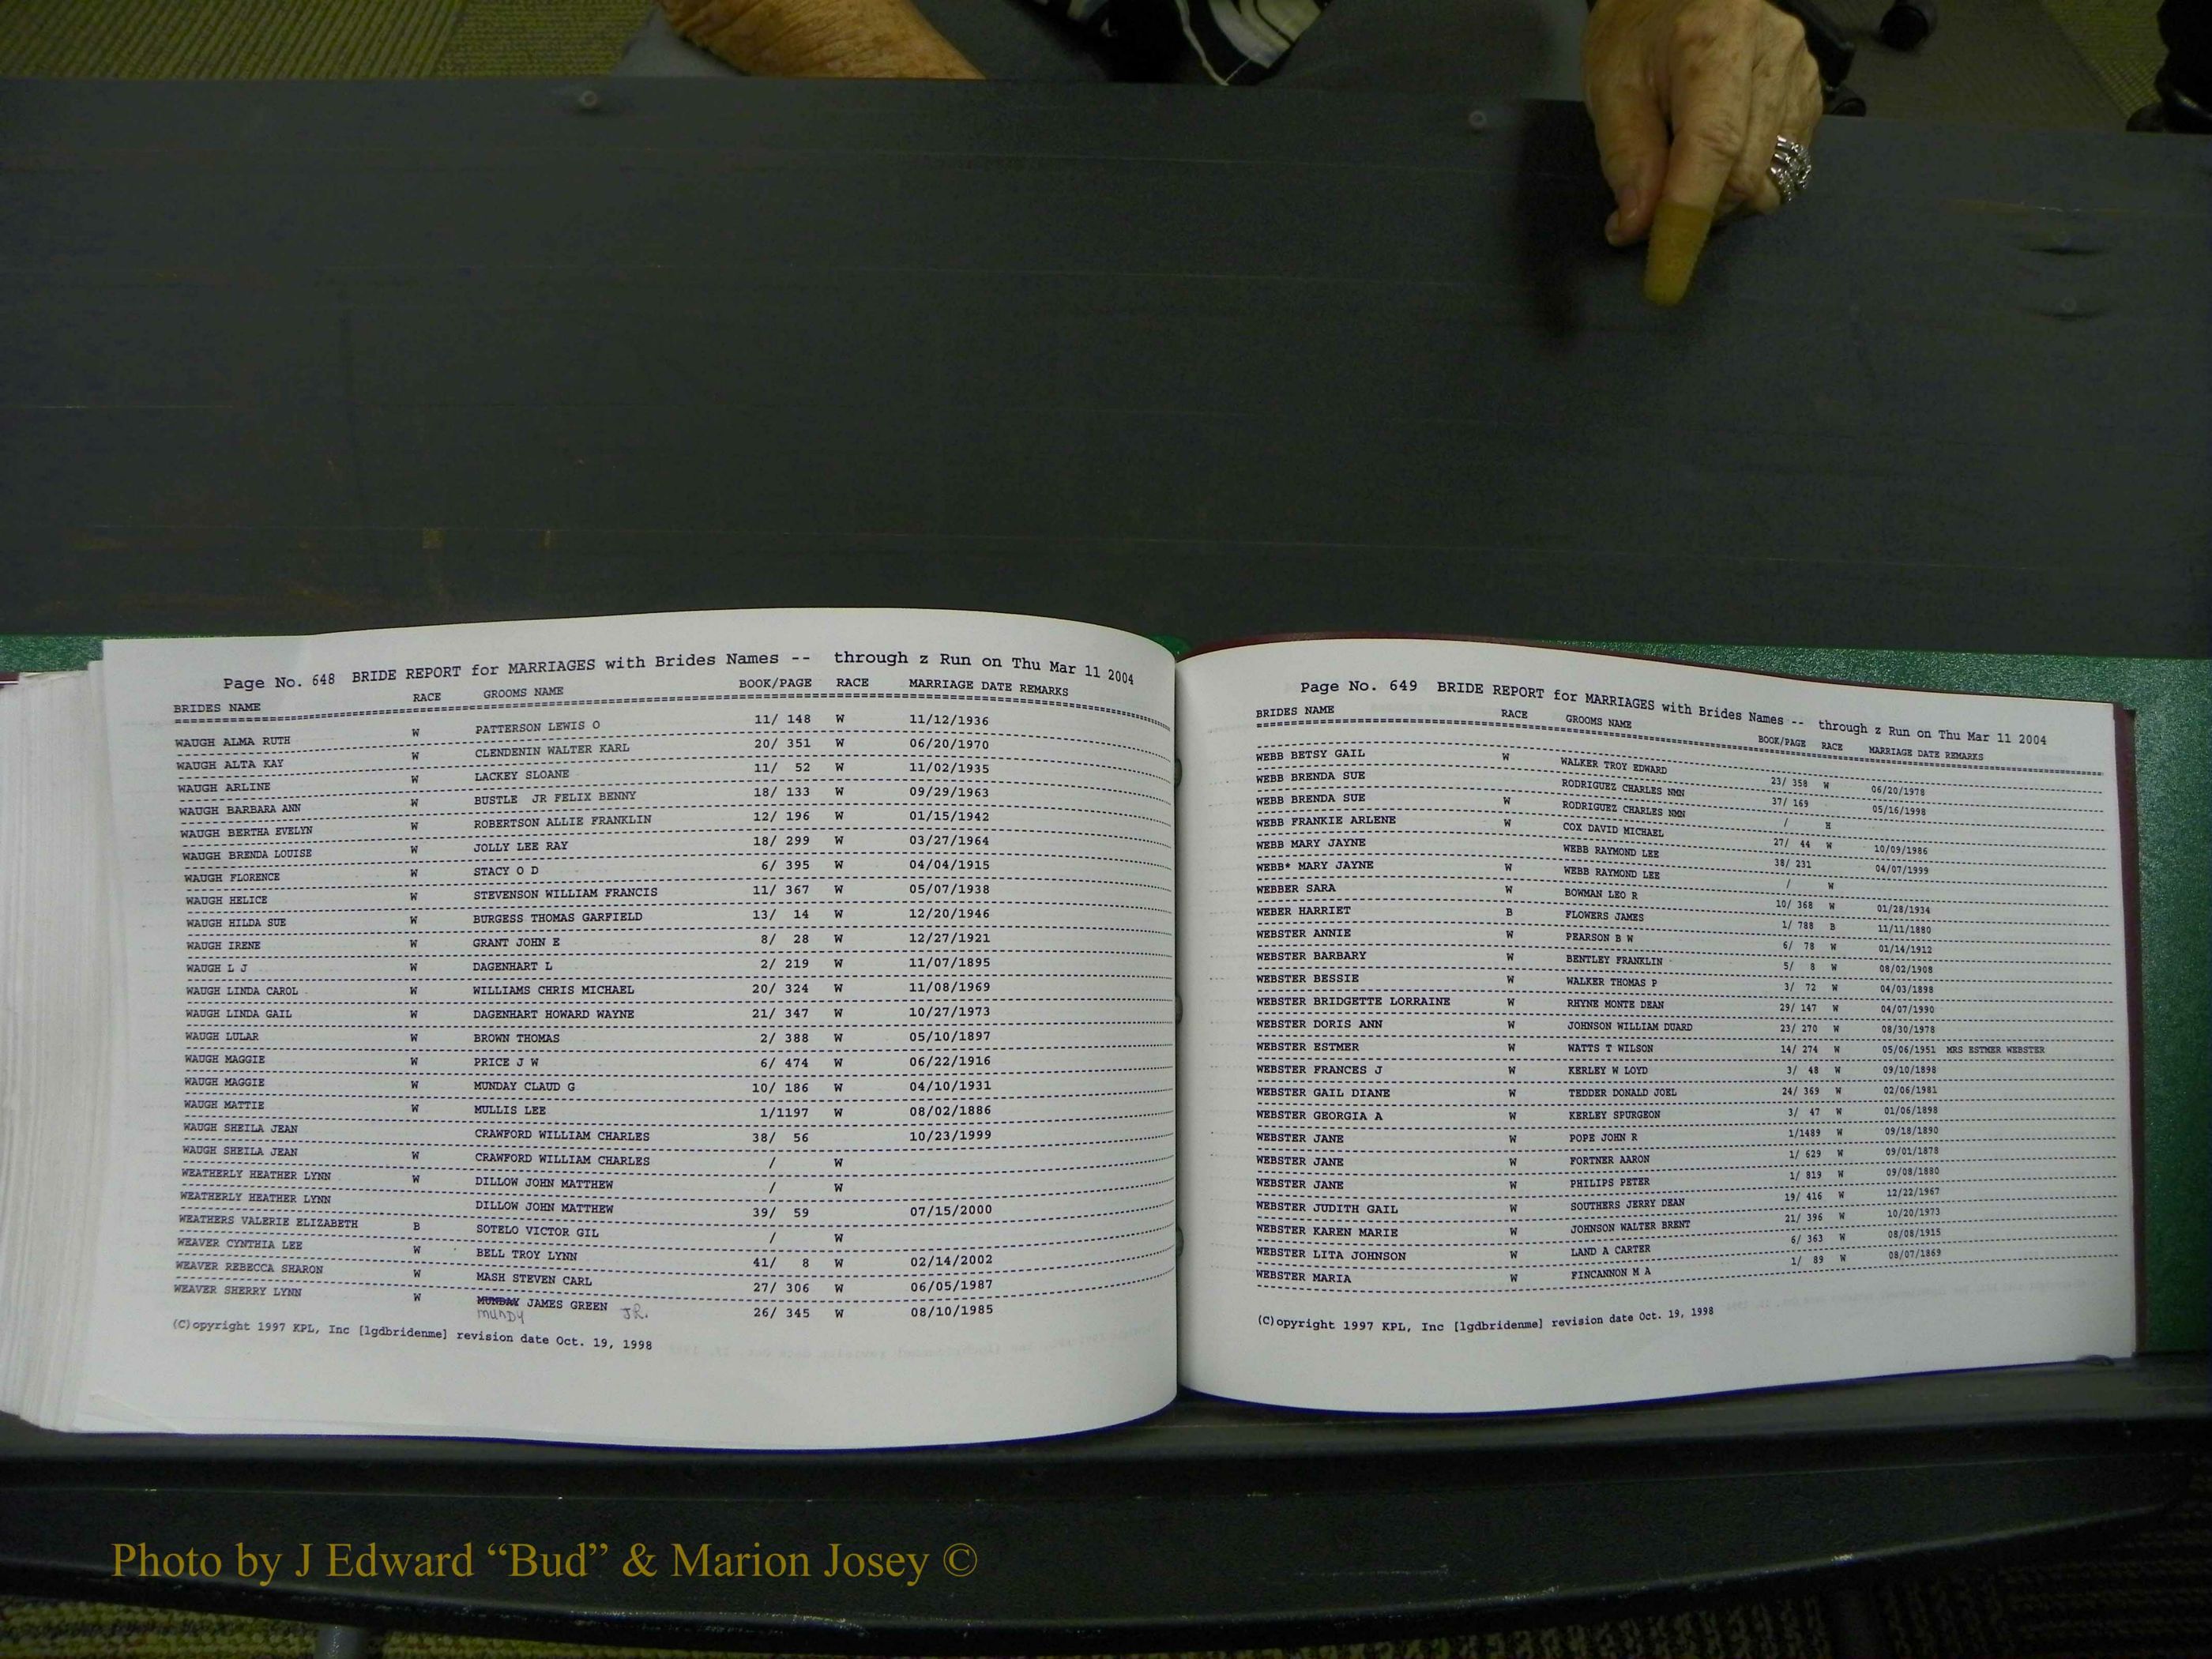 Page No. 648 BRIDE REPORT for MARRIAGES with Brides Names -- through z Run on Thu Mar 11 2004
BRIDES NAME RACE GROOMS NAME BOOK/PAGE RACE MARRIAGE DATE REMARKS
WAUGH ALMA RUTH W PATTERSON LEWIS O 11/ 148 W 11/12/1936
WAUGH ALTA KAY W CLENDENIN WALTER KARL 20/ 351 W 06/20/1970
WAUGH ARLINE W LACKEY SLOANE 11/ 52 W 11/02/1935
WAUGH BARBARA ANN W BUSTLE JR FELIX BENNY 18/ 133 W 09/29/1963
WAUGH BERTHA EVELYN W ROBERTSON ALLIE FRANKLIN 12/ 196 W 01/15/1942
WAUGH BRENDA LOUISE W JOLLY LEE RAY 18/ 299 W 03/27/1964
WAUGH FLORENCE W STACY O D 6/ 395 W 04/04/1915
WAUGH HELICE W STEVENSON WILLIAM FRANCIS 11/ 367 W 05/07/1938
WAUGH HILDA SUE W BURGESS THOMAS GARFIELD 13/ 14 W 12/20/1946
WAUGH IRENE W GRANT JOHN E 8/ 28 W 12/27/1921
WAUGH L J W DAGENHART L 2/ 219 W 11/07/1895
WAUGH LINDA CAROL W WILLIAMS CHRIS MICHAEL 20/ 324 W 11/08/1969
WAUGH LINDA GAIL W DAGENHART HOWARD WAYNE 21/ 347 W 10/27/1973
WAUGH LULAR W BROWN THOMAS 2/ 388 W 05/10/1897
WAUGH MAGGIE W PRICE J W 6/ 474 W 06/22/1916
WAUGH MAGGIE W MUNDAY CLAUD G 10/ 186 W 04/10/1931
WAUGH MATTIE W MULLIS LEE 1/1197 W 08/02/1886
WAUGH SHEILA JEAN CRAWFORD WILLIAM CHARLES 38/ 56 10/23/1999
WAUGH SHEILA JEAN W CRAWFORD WILLIAM CHARLES / W
WEATHERLY HEATHER LYNN W DILLOW JOHN MATTHEW / W
WEATHERLY HEATHER LYNN DILLOW JOHN MATTHEW 39/ 59 07/15/2000
WEATHERS VALERIE ELIZABETH B SOTELO VICTOR GIL / W
WEAVER CYNTHIA LEE W BELL TROY LYNN 41/ 8 W 02/14/2002
WEAVER REBECCA SHARON W MASH STEVEN CARL 27/ 306 W 06/05/1987
WEAVER SHERRY LYNN W MUNDAY JAMES GREEN JR. 26/ 345 W 08/10/1985
MUNDY
(C)opyright 1997 KPL, Inc [lgdbridenme] revision date Oct. 19, 1998
Page No. 649 BRIDE REPORT for MARRIAGES with Brides Names -- through z Run on Thu Mar 11 2004
BRIDES NAME RACE GROOMS NAME BOOK/PAGE RACE MARRIAGE DATE REMARKS
WEBB BETSY GAIL W WALKER TROY EDWARD 23/ 358 W 06/20/1978
WEBB BRENDA SUE RODRIGUEZ CHARLES NMN 37/ 169 05/16/1998
WEBB BRENDA SUE W RODRIGUEZ CHARLES NMN / H
WEBB FRANKIE ARLENE W COX DAVID MICHAEL 27/ 44 W 10/09/1986
WEBB MARY JAYNE WEBB RAYMOND LEE 38/ 231 04/07/1999
WEBB* MARY JAYNE W WEBB RAYMOND LEE / W
WEBBER SARA W BOWMAN LEO R 10/ 368 W 01/28/1934
WEBER HARRIET B FLOWERS JAMES 1/ 788 B 11/11/1880
WEBSTER ANNIE W PEARSON B W 6/ 78 W 01/14/1912
WEBSTER BARBARY W BENTLEY FRANKLIN 5/ 8 W 08/02/1908
WEBSTER BESSIE W WALKER THOMAS P 3/ 72 W 04/03/1898
WEBSTER BRIDGETTE LORRAINE W RHYNE MONTE DEAN 29/ 147 W 04/07/1990
WEBSTER DORIS ANN W JOHNSON WILLIAM DUARD 23/ 270 W 08/30/1978
WEBSTER ESTMER W WATTS T WILSON 14/ 274 W 05/06/1951 MRS ESTMER WEBSTER
WEBSTER FRANCES J W KERLEY W LOYD 3/ 48 W 09/10/1898
WEBSTER GAIL DIANE W TEDDER DONALD JOEL 24/ 369 W 02/06/1981
WEBSTER GEORGIA A W KERLEY SPURGEON 3/ 47 W 01/06/1898
WEBSTER JANE W POPE JOHN R 1/1489 W 09/18/1890
WEBSTER JANE W FORTNER AARON 1/ 629 W 09/01/1878
WEBSTER JANE W PHILIPS PETER 1/ 819 W 09/08/1880
WEBSTER JUDITH GAIL W SOUTHERS JERRY DEAN 19/ 416 W 12/22/1967
WEBSTER KAREN MARIE W JOHNSON WALTER BRENT 21/ 396 W 10/20/1973
WEBSTER LITA JOHNSON W LAND A CARTER 6/ 363 W 08/08/1915
WEBSTER MARIA W FINCANNON M A 1/ 89 W 08/07/1869
(C)opyright 1997 KPL, Inc [lgdbridenme] revision date Oct. 19, 1998
Photo by J Edward “Bud” & Marion Josey ©